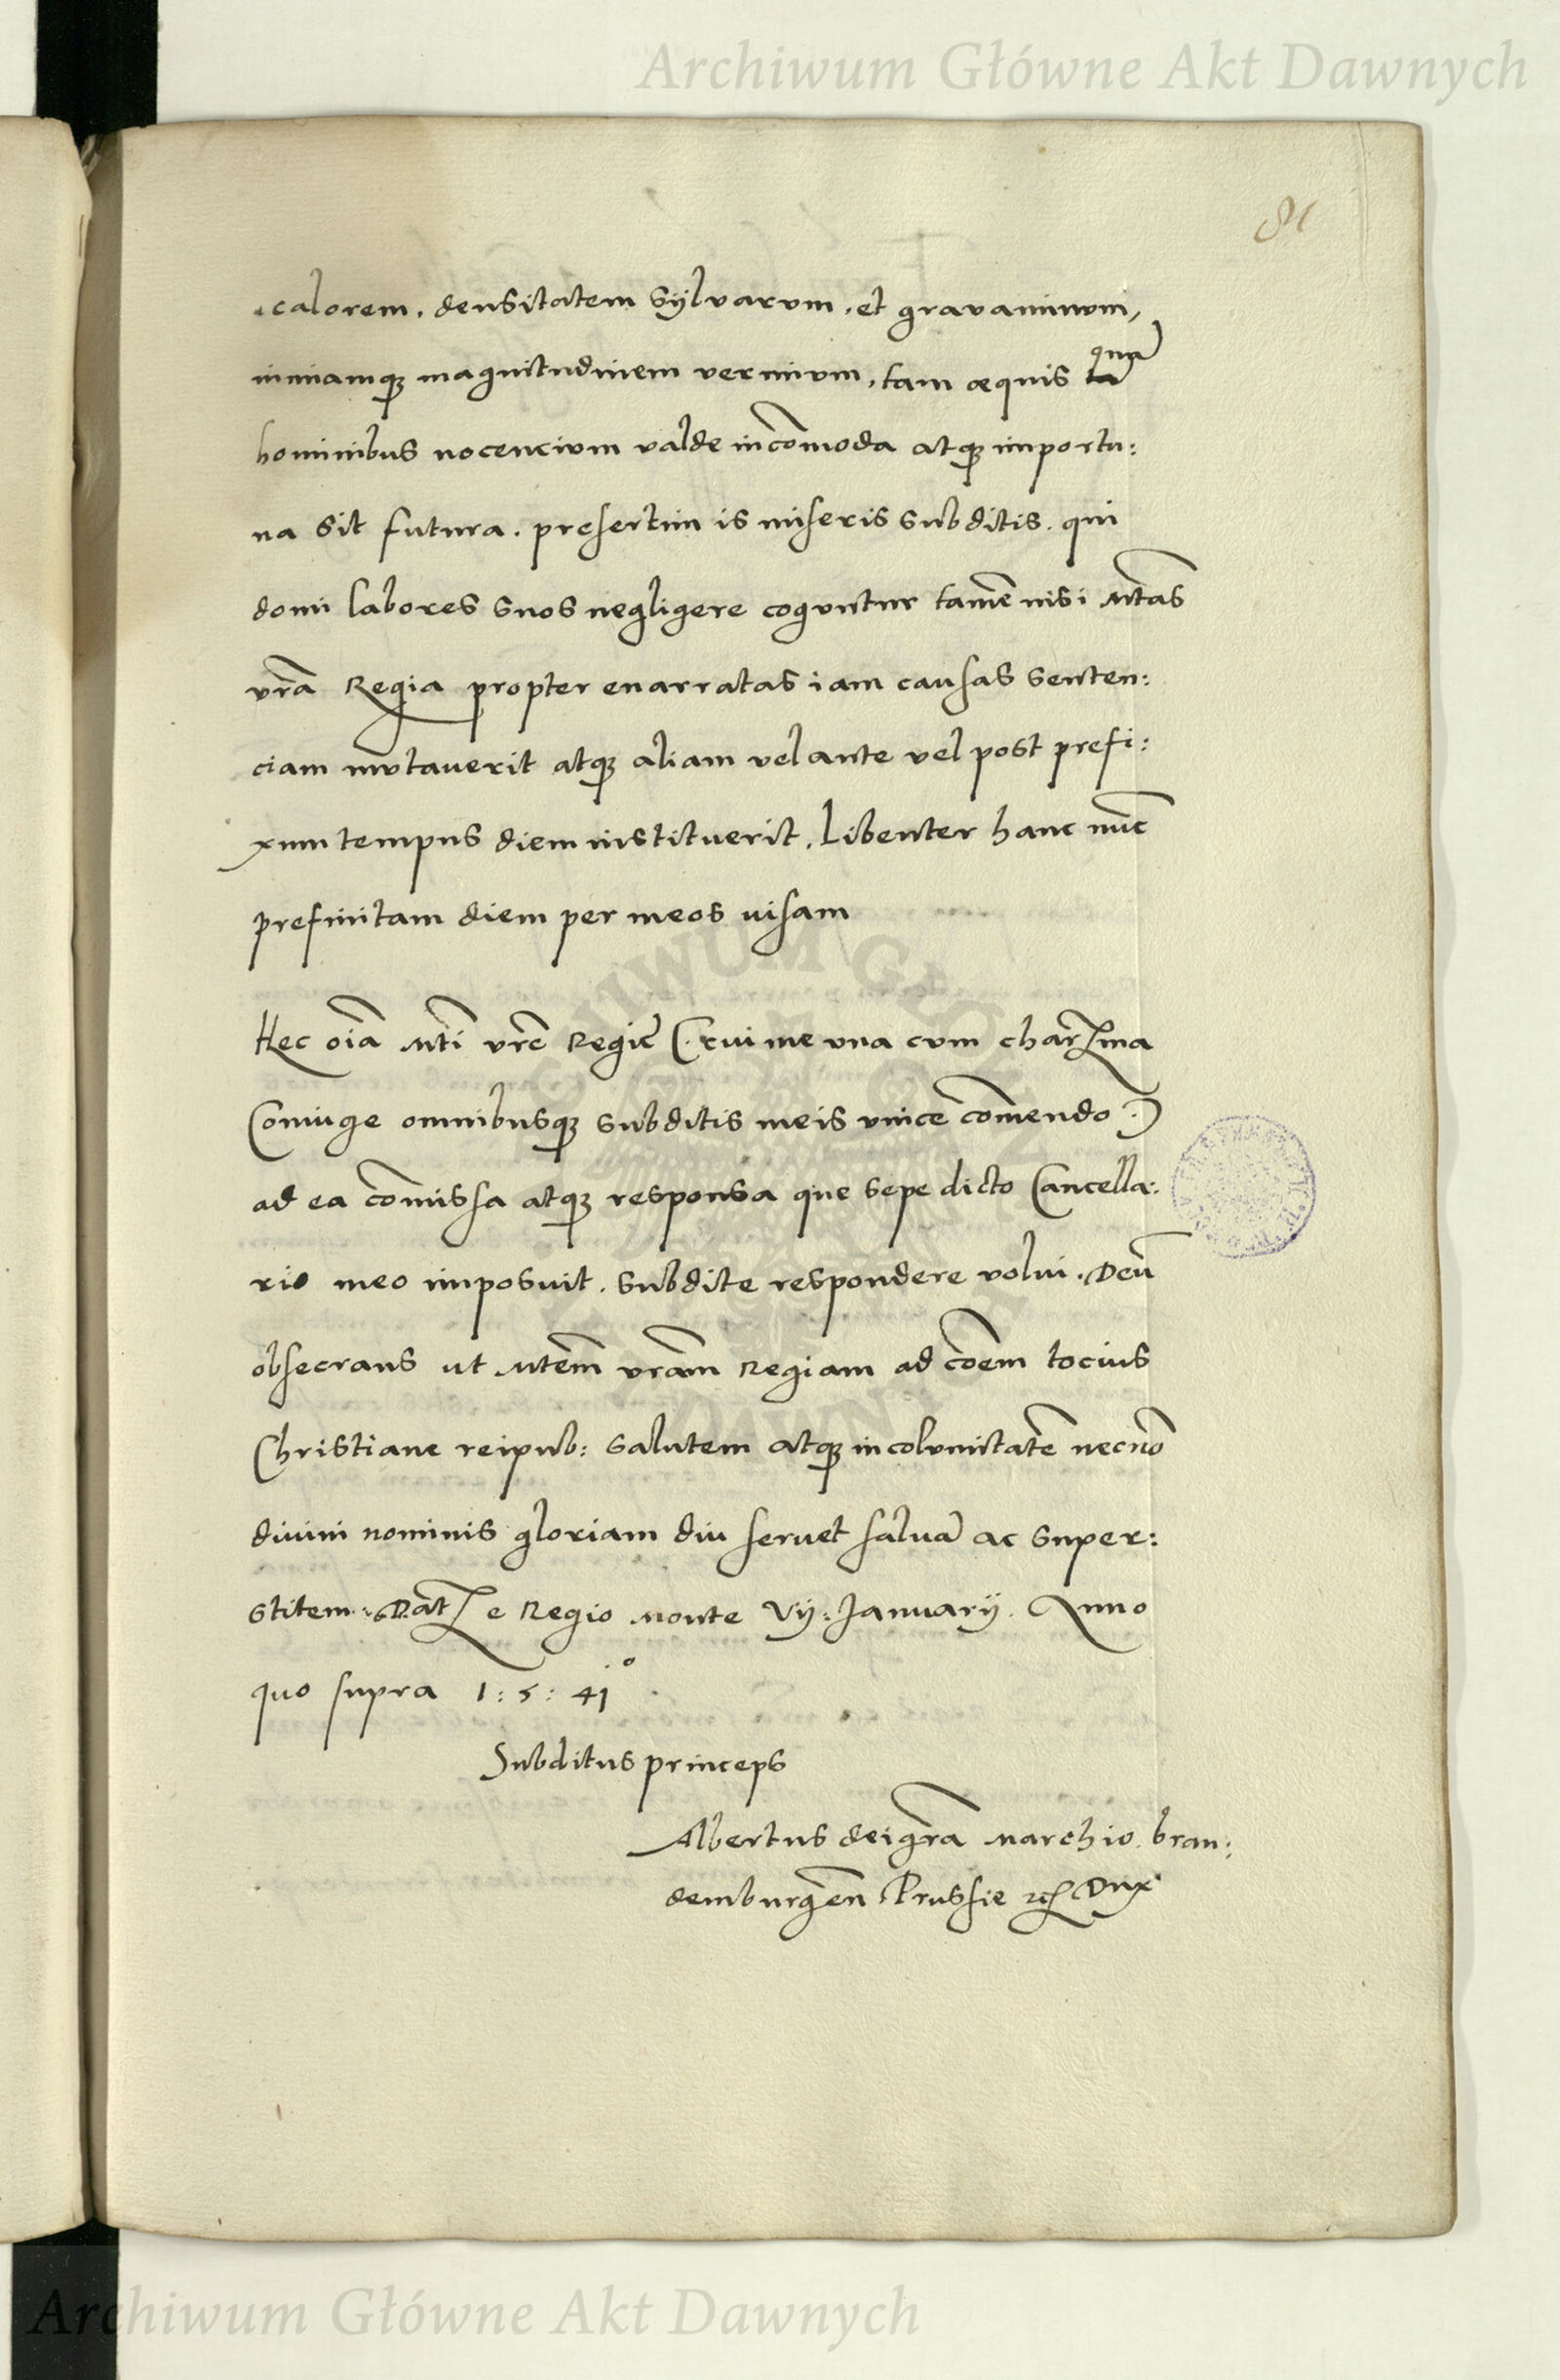 Archiwum Główne Akt Dawnych
81
calorem. densitatem sylvarum. et gravaminum,
nimiamq; magnitudinem vermium. tam æquis quã
hominibus nocencium valde incõmoda atq; importu:
na sit futura. presertim is miseris subditis. qui
domi labores suos negligere coguntur tamẽ nisi Mtas
vrã Regia propter enarratas iam causas senten:
ciam mutaverit atq; aliam vel ante vel post prefi:
xum tempus diem instituerit. Libenter hanc nũc
prefinitam diem per meos visam
Hec oĩa Mti vrẽ Regiẽ (. cui me una cum charma
Coniuge omnibusq; subditis meis unice cõmendo .)
ad ea cõmissa atq; responsa que sepe dicto Cancella:
rio meo imposuit. subdite respondere volui. Deũ
obsecrans ut Mtẽm vrãm Regiam ad cõem tocius
Christiane reipub: salutem atq; incolumitatẽ necnõ
divini nominis gloriam diu servet salvã ac super:
stitem. Dat e Regio Monte Vij: Januarij. Anno
quo supra 1:5:41°
Subditus princeps
Albertus dei grã Marchio bran:
demburgẽn Prussie &c Dux
Archiwum Główne Akt Dawnych